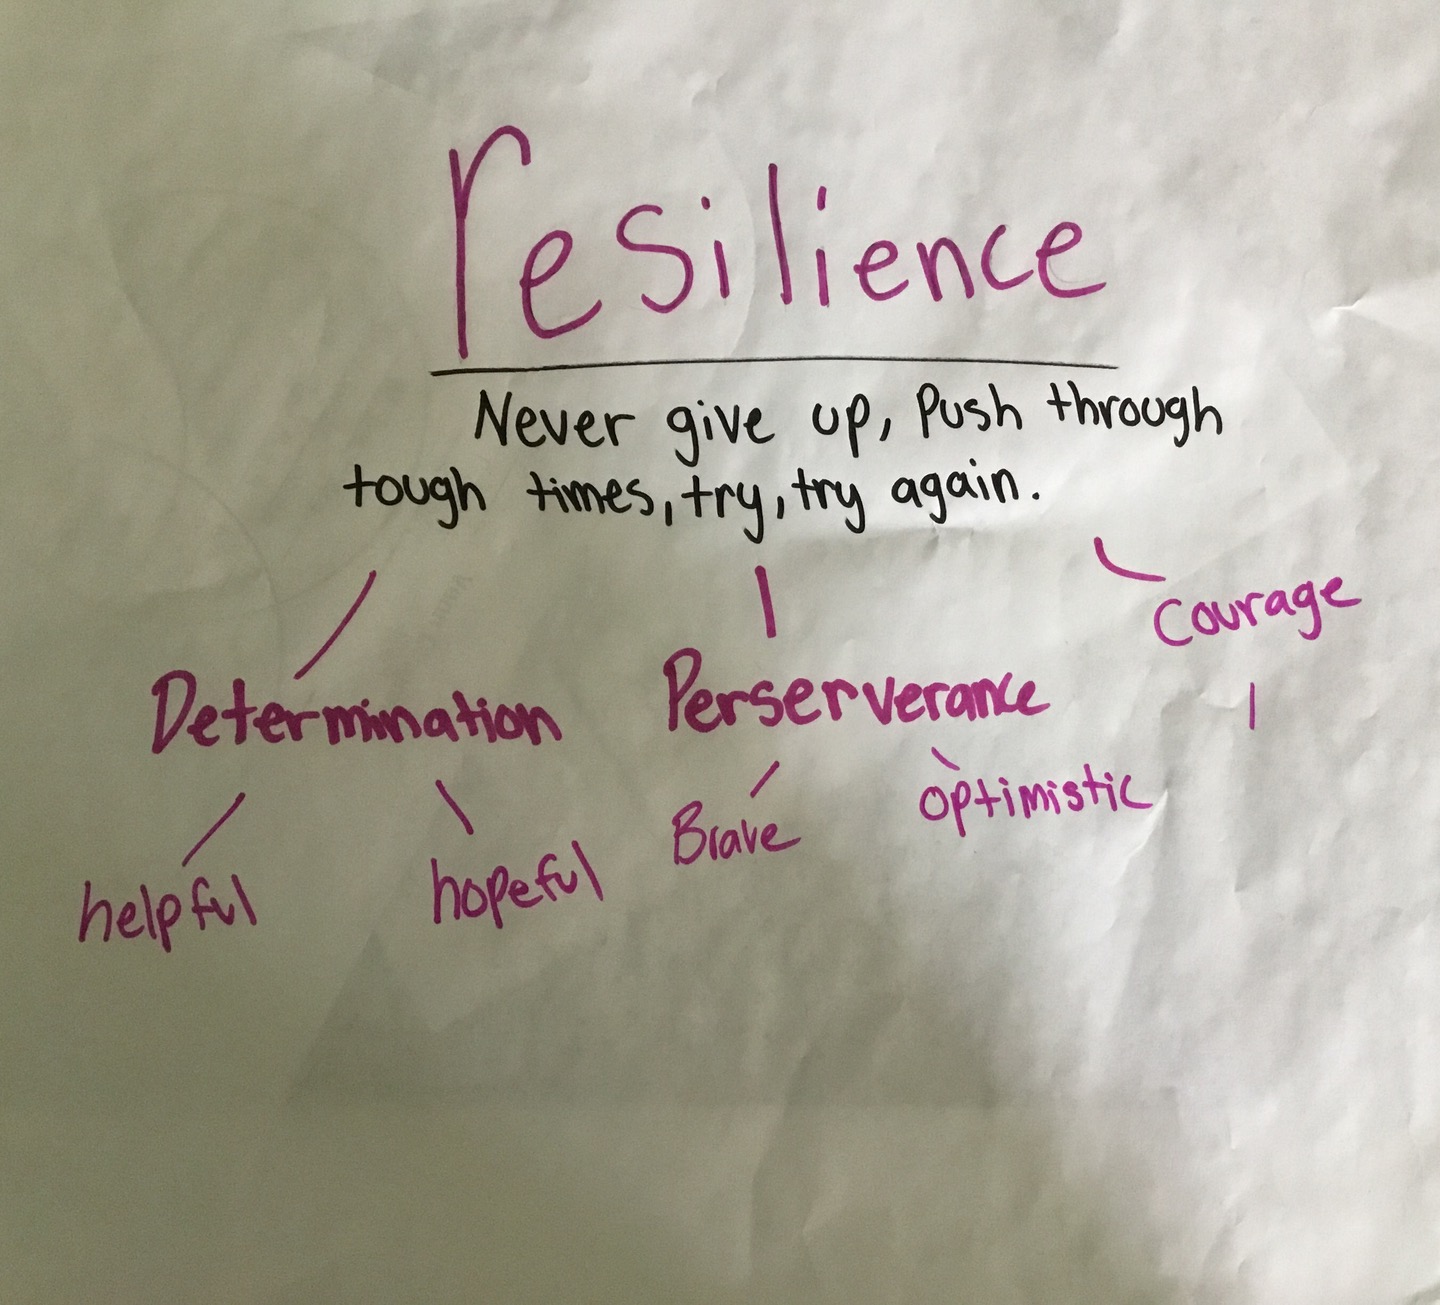 resilience
Never give up, Push through
tough times, try, try again.
Courage
Determination
Perserverance
optimistic
Brave
helpful
hopeful